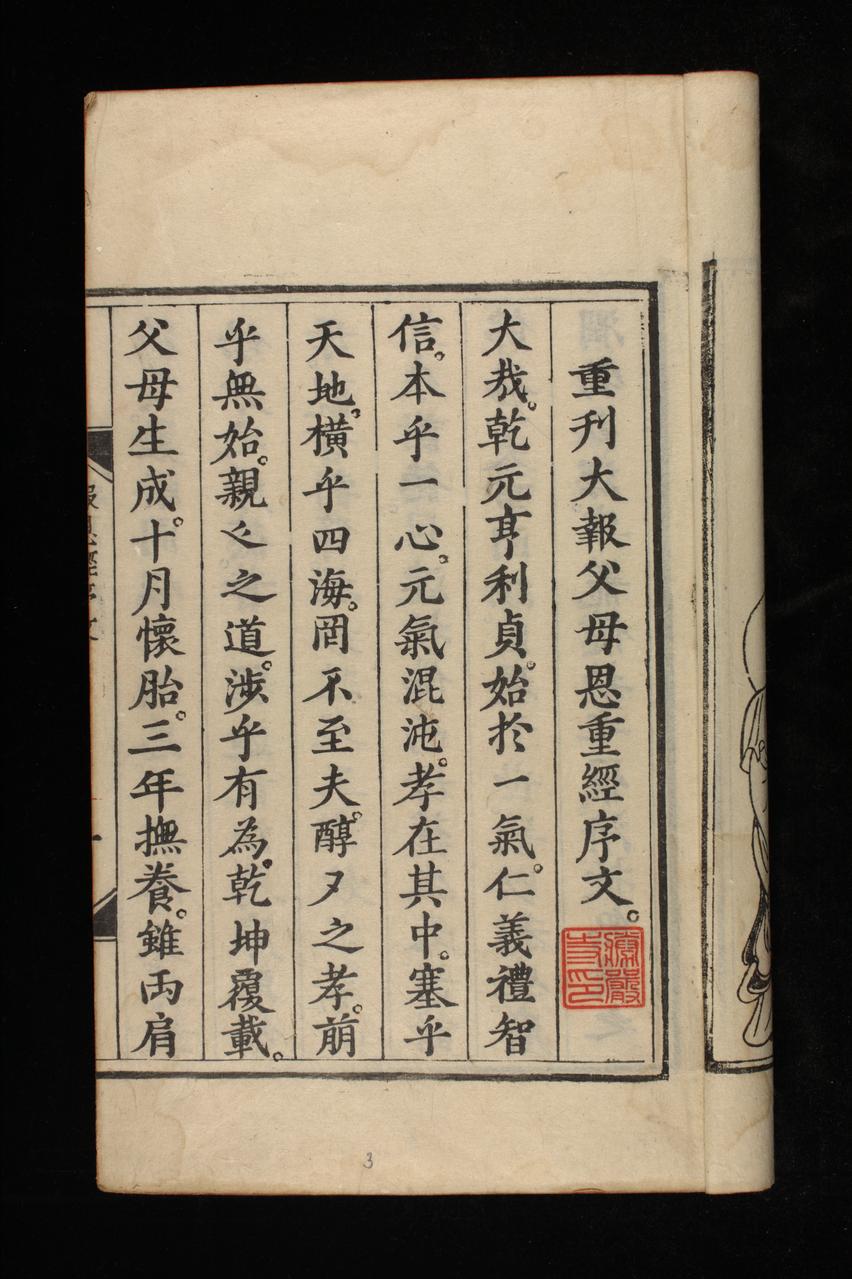 重刊大報父母恩重經序文。
大哉。乾元亨利貞。始於一氣。仁義禮智
信。本乎一心。元氣混沌。孝在其中。塞乎
天地。橫乎四海。罔不至夫。醇〻之孝。萠
乎無始。親〻之道。涉乎有為。乾坤覆載。
父母生成。十月懷胎。三年撫養。雖両肩
報恩經序文
3